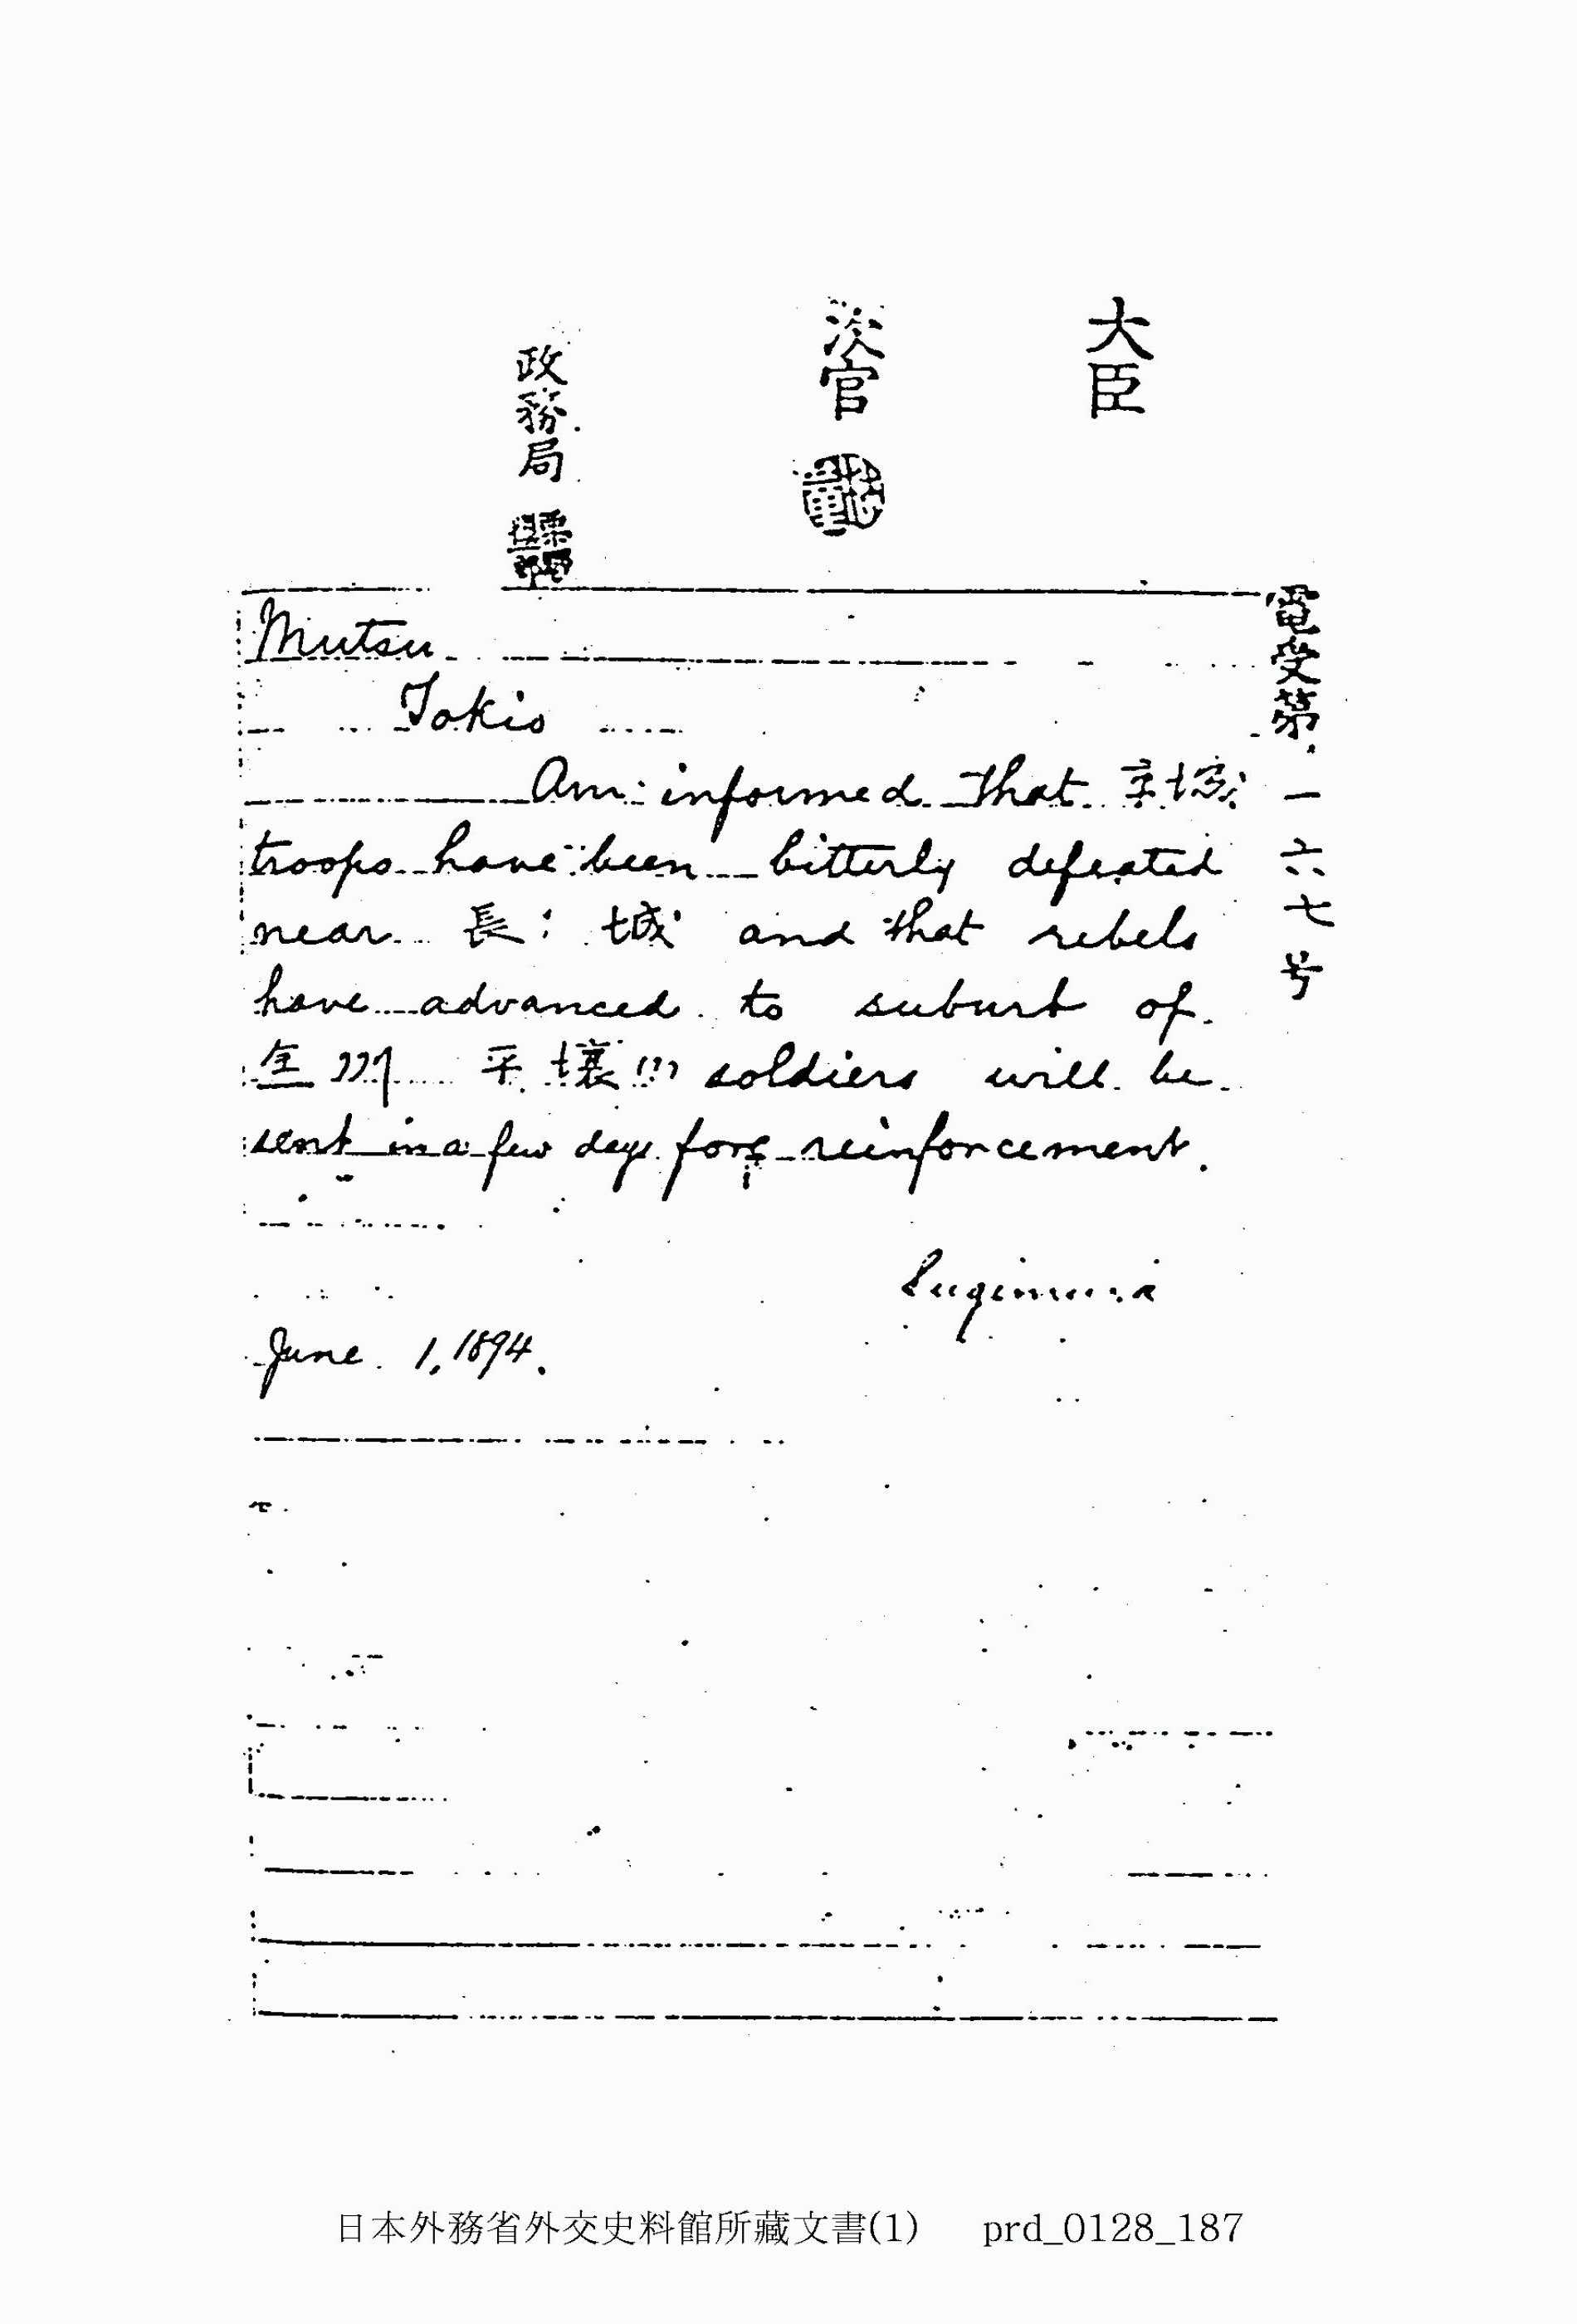 大臣
次官
政務局
電受第一六七号
Mutsu
Tokio
Am informed that 京城
troops have been bitterly defeated
near 長城 and that rebels
have advanced to suburb of
全州 平壤 soldiers will be
sent in a few days for reinforcement.
Sugimura
June 1, 1894.
日本外務省外交史料館所藏文書(1) prd_0128_187